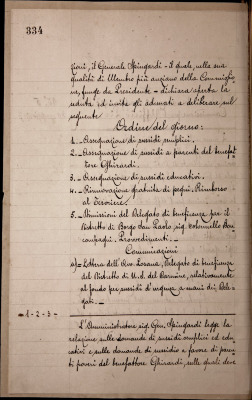 334
zioni, il Generale Spingardi - il quale, nella sua
qualità di Membro più anziano della Commissio-
ne, funge da Presidente - dichiara aperta la
seduta ed invita gli adunati a deliberare sul
seguente
Ordine del giorno:
1. - Assegnazione di sussidi semplici.
2. - Assegnazione di sussidi a parenti del benefat-
tore Ghirardi.
3. - Assegnazione di sussidi educativi.
4. - Rinnovazione gratuita di pegni. Rimborso
al Tesoriere.
5. - Dimissioni del Delegato di beneficenza per il
Distretto di Borgo San Paolo, sig. Colonnello
Provvedimenti. -
Comunicazioni
a) - Lettera dell'Avv. Losana, Delegato di beneficenza
del Distretto di N. S. del Carmine, relativamente
al fondo per sussidi d'urgenza a mani dei Dele-
gati. -
- 1 - 2 - 3 -
L'Amministratore sig. Gen. Spingardi legge la
relazione sulle domande di sussidi semplici ed edu-
cativi e sulle domande di sussidio a favore di paren-
ti poveri del benefattore Ghirardi, sulle quali deve